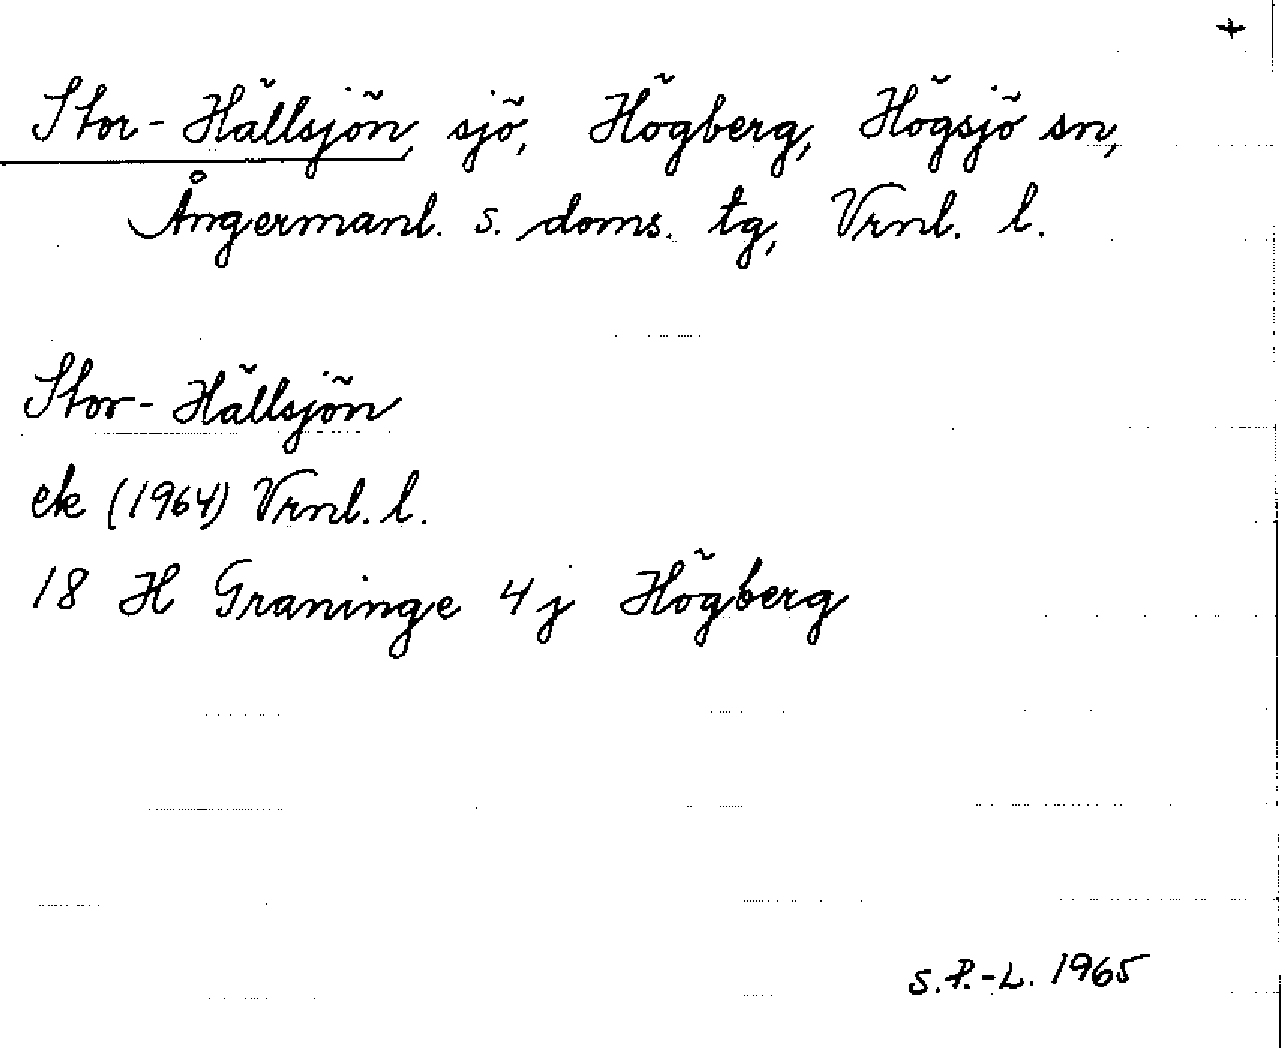 +
Stor-Hällsjön, sjö, Högberg, Högsjö sn,
Ångermanl. s. doms. tg, Vrnl. l.
Stor-Hällsjön
ek (1964) Vrnl. l.
18 H Graninge 4j Högberg
S.P.-L. 1965